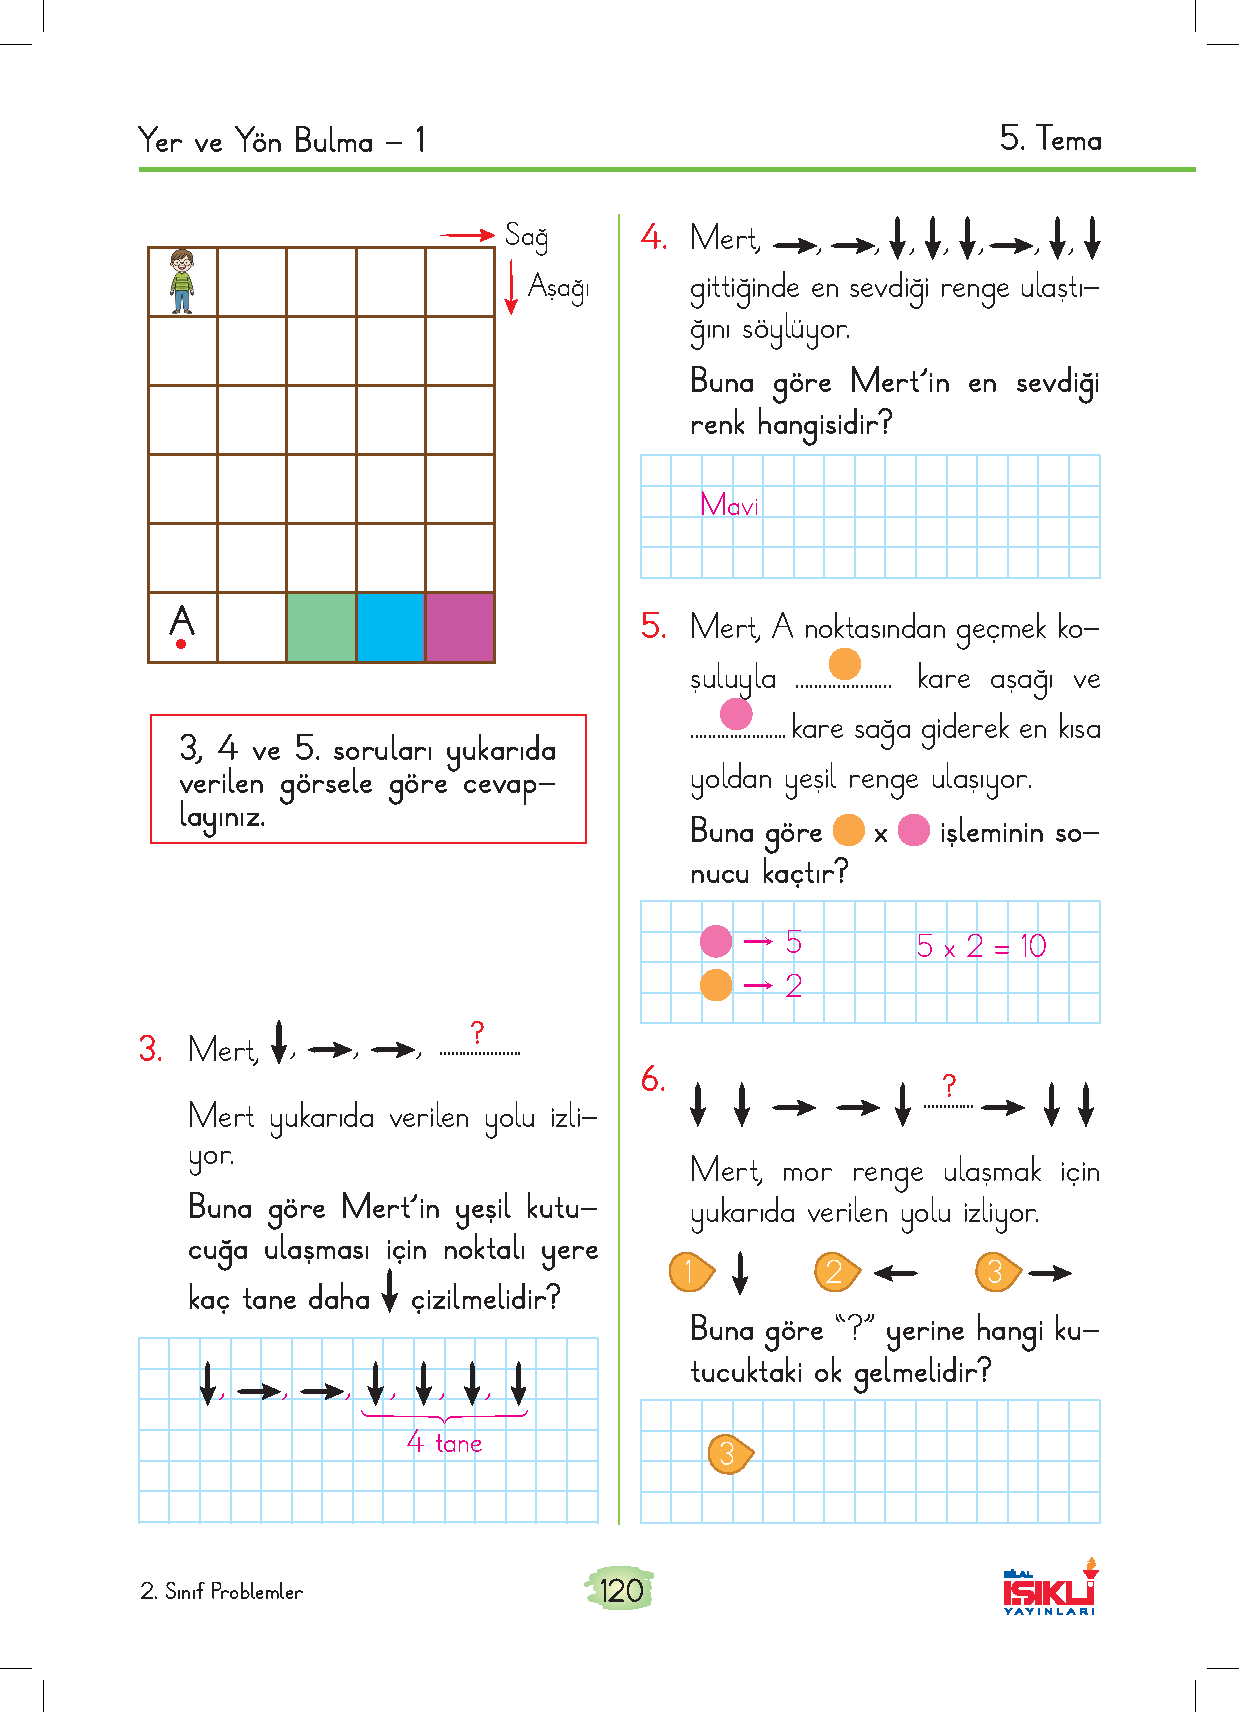 Yer ve Yön Bulma – 1
5. Tema
Sağ
Aşağı
A
3, 4 ve 5. soruları yukarıda
verilen görsele göre cevap-
layınız.
3. Mert, , , , ?
Mert yukarıda verilen yolu izli-
yor.
Buna göre Mert'in yeşil kutu-
cuğa ulaşması için noktalı yere
kaç tane daha çizilmelidir?
4 tane
4. Mert, , , , , , , ,
gittiğinde en sevdiği renge ulaştı-
ğını söylüyor.
Buna göre Mert'in en sevdiği
renk hangisidir?
Mavi
5. Mert, A noktasından geçmek ko-
şuluyla ..................... kare aşağı ve
..................... kare sağa giderek en kısa
yoldan yeşil renge ulaşıyor.
Buna göre x işleminin so-
nucu kaçtır?
→ 5 5 x 2 = 10
→ 2
6. ?
Mert, mor renge ulaşmak için
yukarıda verilen yolu izliyor.
1 2 3
Buna göre "?" yerine hangi ku-
tucuktaki ok gelmelidir?
3
2. Sınıf Problemler
120
BİLAL
IŞIKLI
YAYINLARI